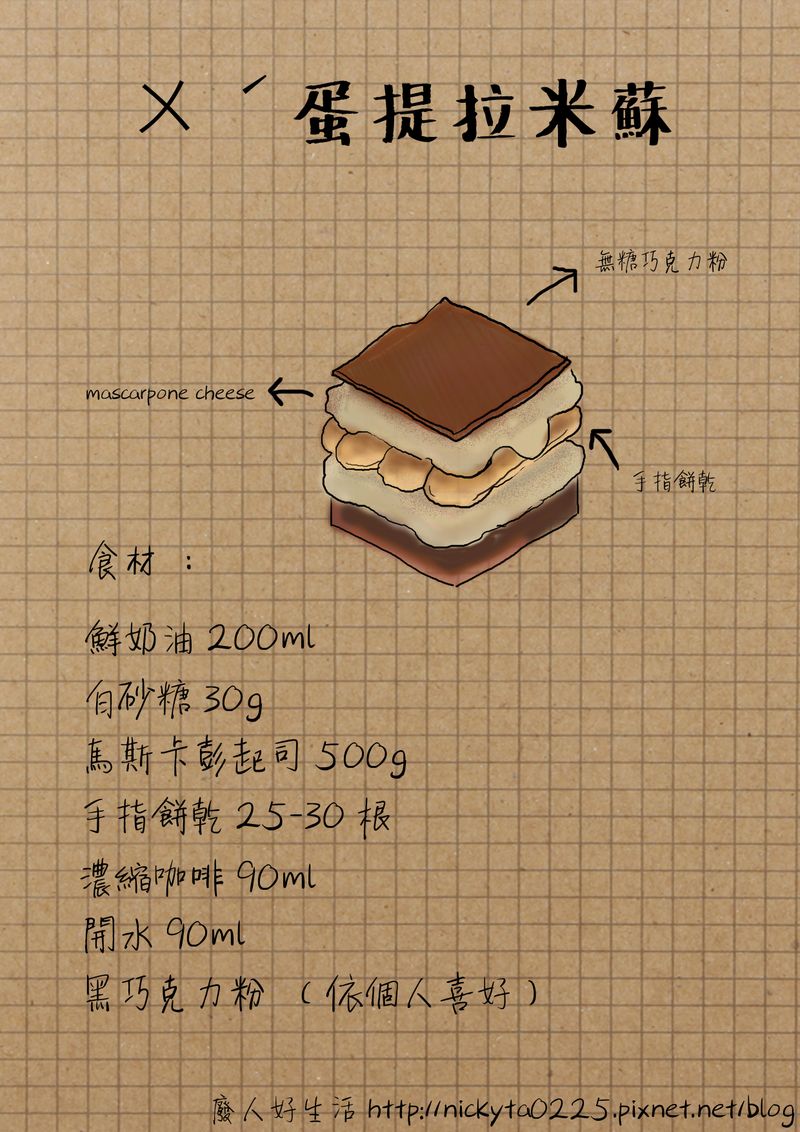 ㄨˊ蛋提拉米蘇
無糖巧克力粉
mascarpone cheese
手指餅乾
食材：
鮮奶油 200ml
白砂糖 30g
馬斯卡彭起司 500g
手指餅乾 25-30 根
濃縮咖啡 90ml
開水 90ml
黑巧克力粉 （依個人喜好）
廢人好生活 http://nickyta0225.pixnet.net/blog